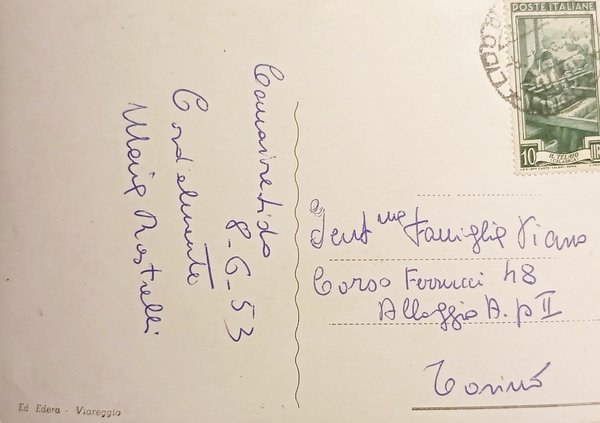 Camaiore Lido
8-6-53
Cordialmente
Maria Rastrelli
POSTE ITALIANE
LIDO
10
IL TELAIO
Gent.me Famiglia Viano
Corso Ferrucci 48
Alloggio A. p II
Torino
Ed Edera - Viareggio